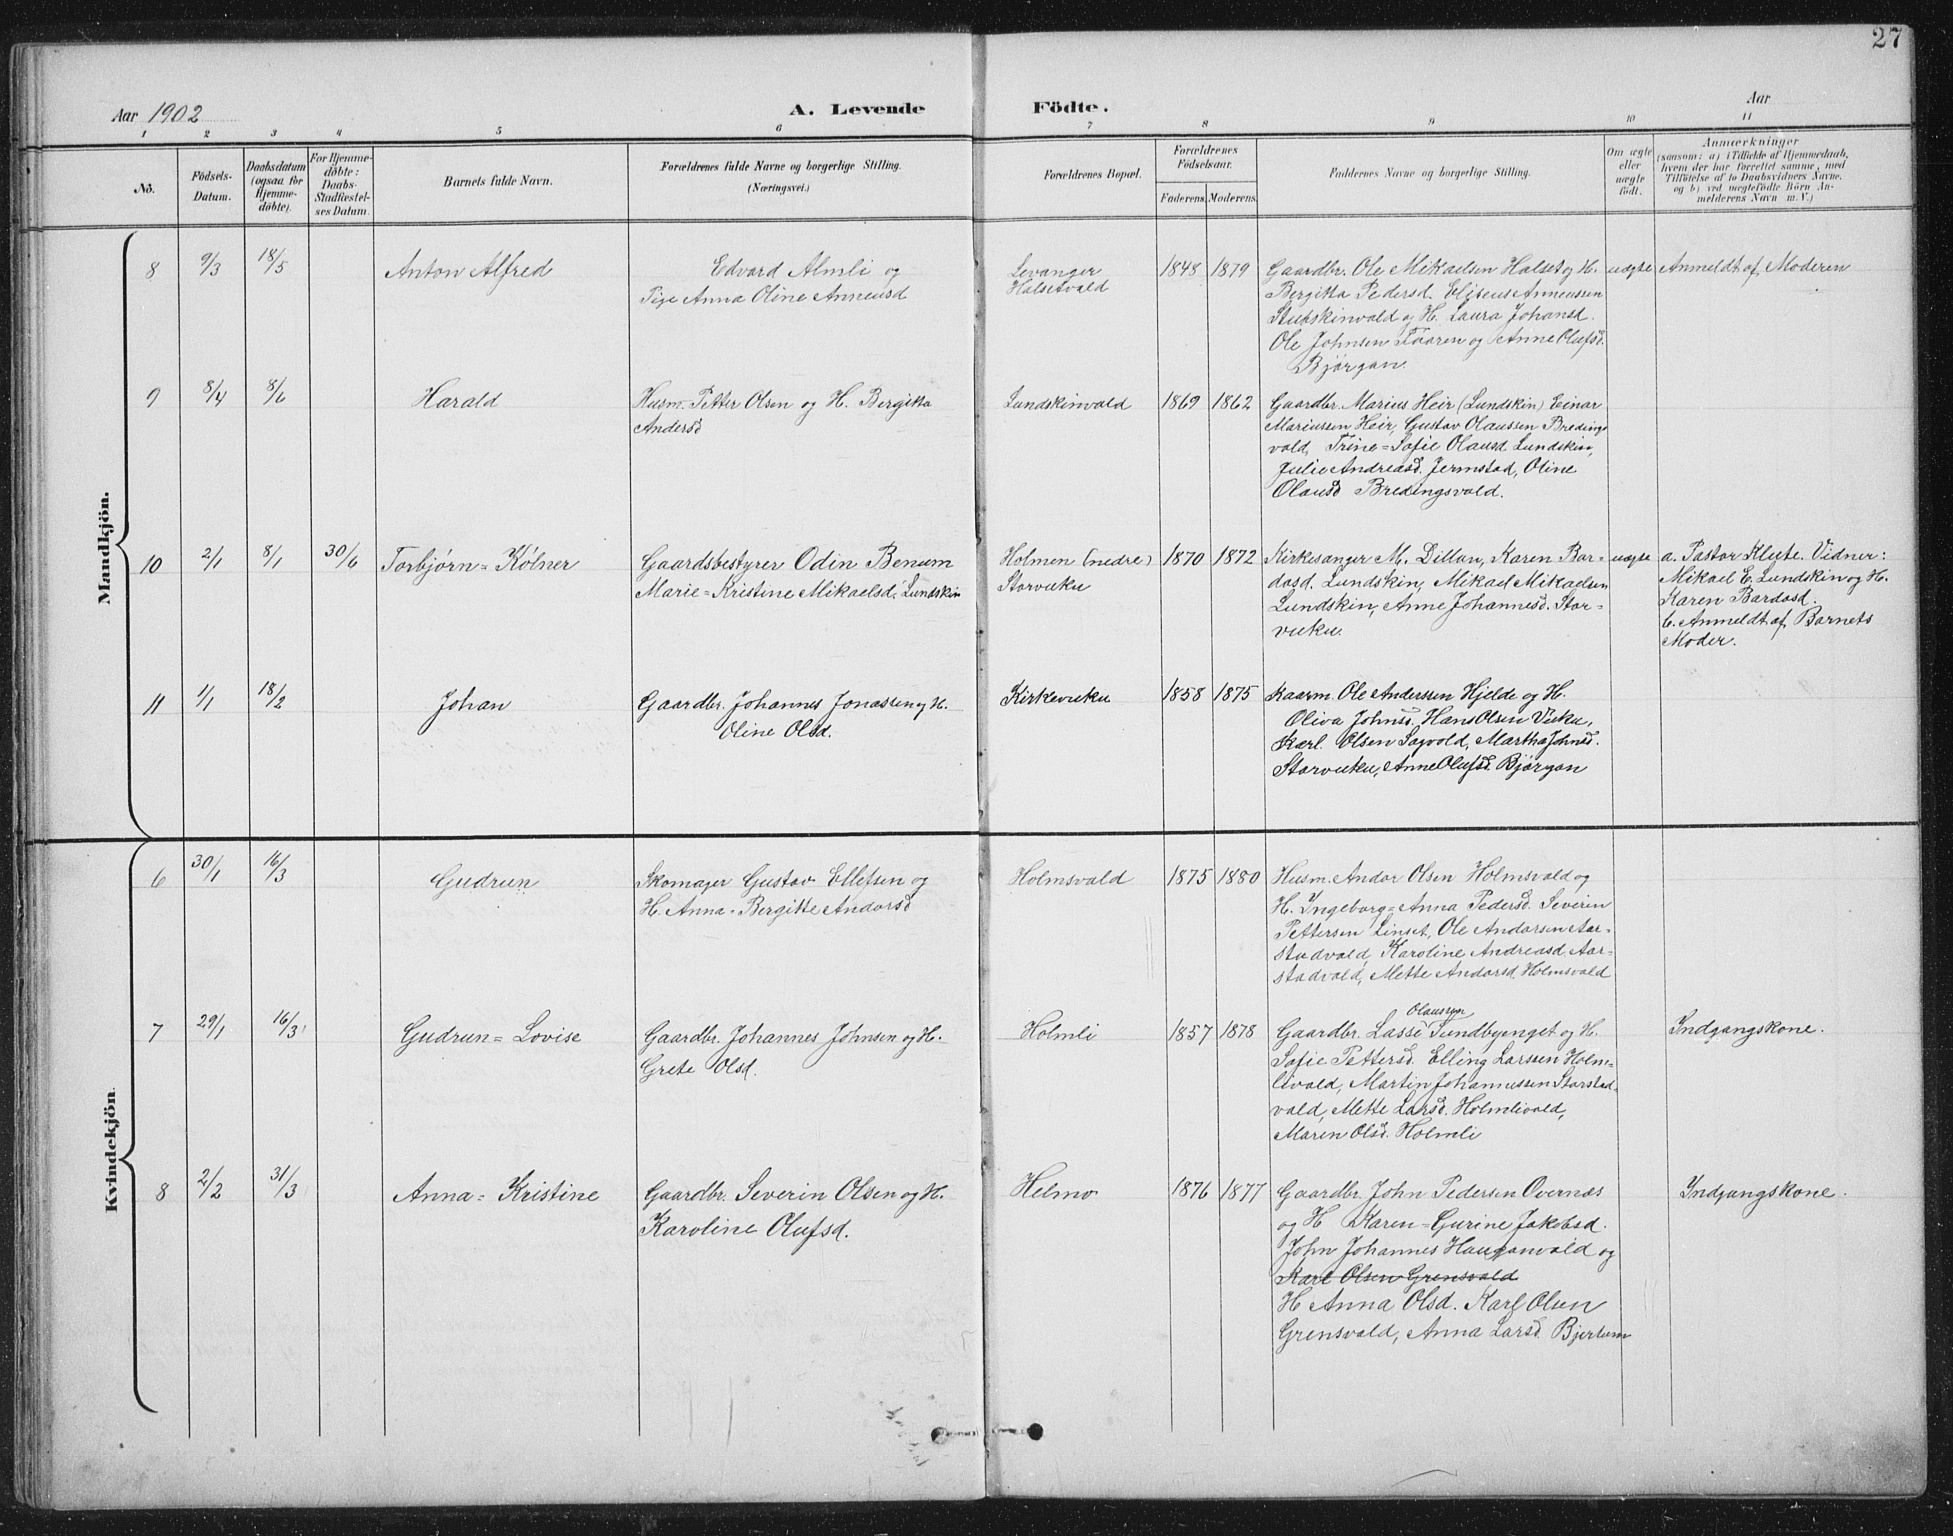 27
Aar 1902
A. Levende Födte.
Aar
1 2 3 4 5 6 7 8 9 10 11
No.
Födsels-
Datum.
Daabsdatum
(ogsaa for
Hjemme-
döbte).
For Hjemme-
döbte:
Daabs-
Stadfæstel-
ses Datum.
Barnets fulde Navn.
Forældrenes fulde Navne og borgerlige Stilling.
(Næringsvei.)
Forældrenes Bopæl.
Forældrenes
Födselsaar.
Faderens. Moderens.
Faddernes Navne og borgerlige Stilling.
Om ægte
eller
uægte
födt.
Anmærkninger
(saasom: a) i Tilfælde af Hjemmedaab,
hvem der har forrettet samme, med
Tilföielse af to Daabsvidners Navne.
og b) ved uægtefödte Börn An-
melderens Navn m. V.)
Mandkjön.
8 9/3 18/5 Anton Alfred
Edvard Almli og
Pige Anna Oline Anneusd
Levanger
Halsetvald
1848 1879
Gaardbr. Ole Mikaelsen Halset og H.
Bergitta Pedersd. Eliseus Anneussen
Stubskinvald og H. Laura Johansd.
Ole Johnsen Faaren og Anne Olufsd.
Bjørgan.
uægte
Anmeldt af Moderen
9 8/4 8/6 Harald
Husm. Petter Olsen og H. Bergitta
Andersd
Lundskinvald
1869 1862
Gaardbr. Marius Heir (Lundskin) Einar
Mariussen Heir, Gustav Olaussen Bredings
vald, Trine=Sofie Olausd Lundskin,
Julie Andreasd. Jermstad, Oline
Olausd Bredingsvald.
10 2/1 8/1 30/6 Torbjørn=Kølner
Gaardsbestyrer Odin Benum
Marie=Kristine Mikaelsd. Lundskin
Holmen (nedre)
Storvuku
1870 1872
Kirkesanger M. Dillan, Karen Bar-
dosd. Lundskin, Mikael Mikaelsen
Lundskin, Anne Johannesd. Stor-
vuku.
uægte
a. Pastor Klyke. Vidner:
Mikael E. Lundskin og H.
Karen Bardosd.
b. Anmeldt af Barnets
Moder.
11 1/1 18/2 Johan
Gaardbr. Johannes Jonassen og H.
Oline Olsd.
Kirkevuku
1858 1875
Kaarm. Ole Anderssen Hjelde og H.
Oliva Johnsd. Hans Olsen Vuku,
Karl Olsen Sagvold, Martha Johnsd.
Storvuku, Anne Olufsd. Bjørgan
Kvindekjön
6 30/1 16/3 Gudrun
Skomager Gustav Ellefsen og
H. Anna=Bergitte Andorsd
Holmsvald
1875 1880
Husm. Andor Olsen Holmsvald og
H. Ingeborg=Anna Pedersd. Severin
Pettersen Linset, Ole Andorsen Aar-
stadvald, Karoline Andreasd. Aar-
stadvald, Mette Andorsd. Holmsvald
7 29/1 16/3 Gudrun=Lovise
Gaardbr. Johannes Johnsen og H.
Grete Olsd.
Holmli
1857 1878
Olaussen
Gaardbr. Lasse Sundbyenget og H.
Sofie Pettersd. Elling Larssen Holm-
livald, Martin Johannessen Storstad-
vald, Mette Larsd. Holmlivald,
Maren Olsd. Holmli
Indgangskone.
8 2/2 31/3 Anna=Kristine
Gaardbr. Severin Olsen og H.
Karoline Olufsd.
Helmo
1876 1877
Gaardbr. John Pedersen Overnæs
og H Karen=Gurine Jakobsd.
John Johannes Hauganvald og
Karl Olsen Grensvald
H Anna Olsd. Karl Olsen
Grensvald, Anna Larsd. Bjertum
Indgangskone.